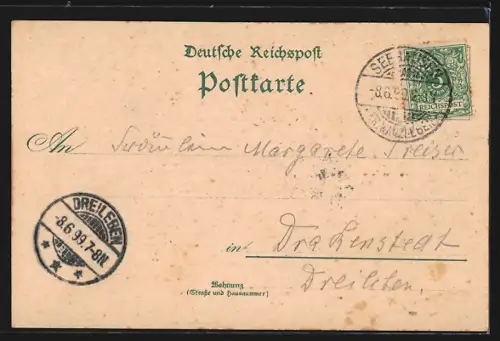 Deutsche Reichspost
Postkarte
SEEHAUSEN
-8.6.99
5
REICHSPOST
An Fräulein Margarete Preiser
DREILEBEN
-8.6.99.7-8N.
in Drakenstedt
Dreileben
Wohnung
(Straße und Hausnummer)